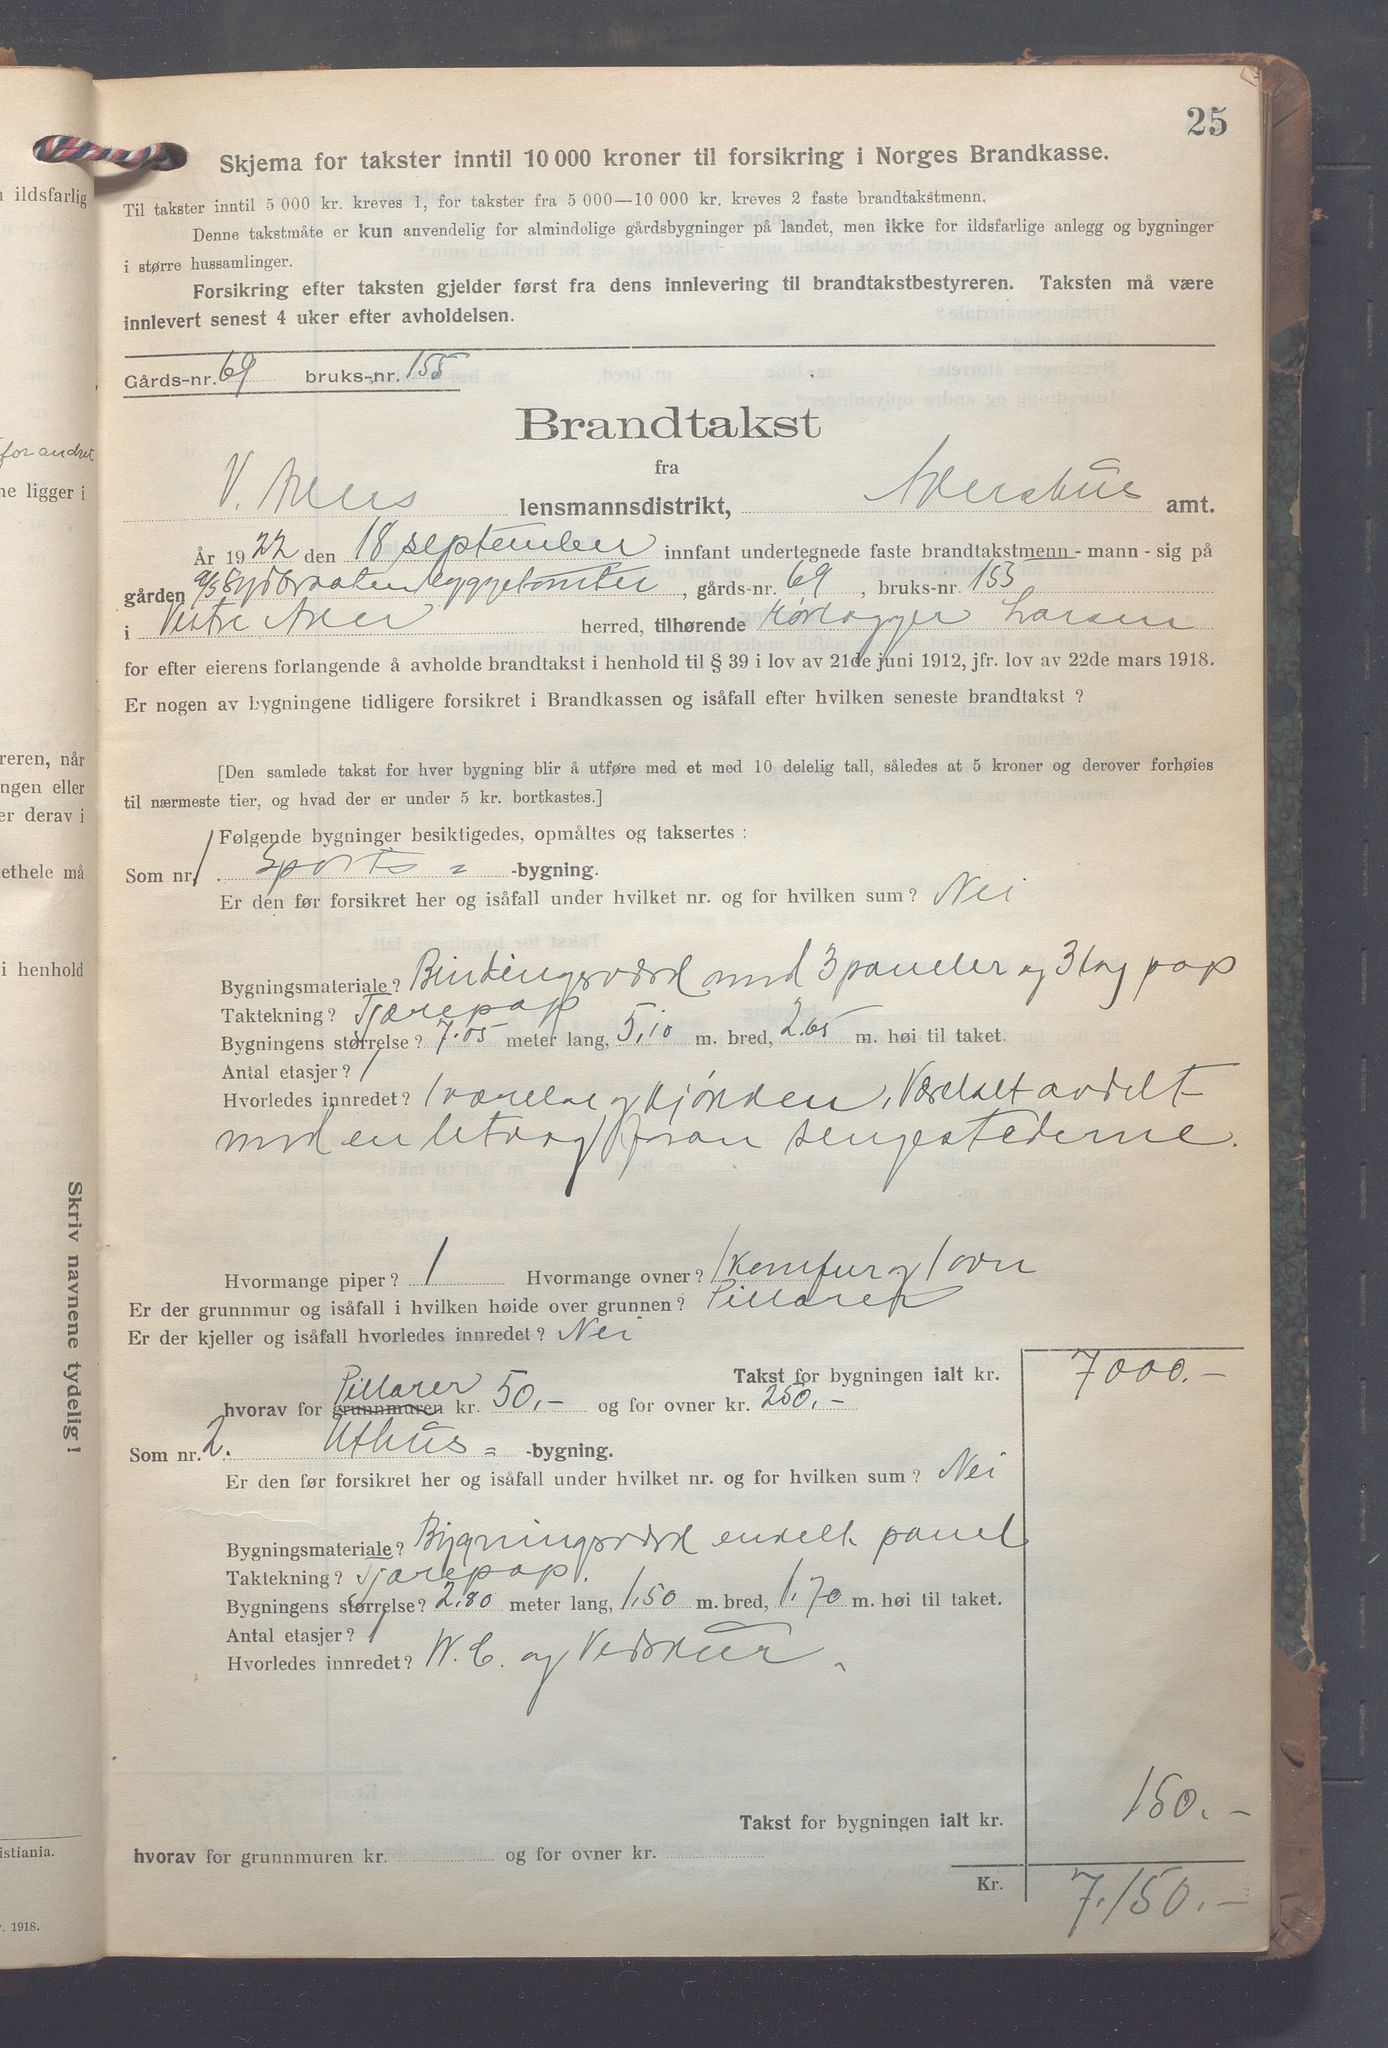 25
Skjema for takster inntil 10 000 kroner til forsikring i Norges Brandkasse.
Til takster inntil 5 000 kr. kreves 1, for takster fra 5 000—10 000 kr. kreves 2 faste brandtakstmenn.
Denne takstmåte er kun anvendelig for almindelige gårdsbygninger på landet, men ikke for ildsfarlige anlegg og bygninger
i større hussamlinger.
Forsikring efter taksten gjelder først fra dens innlevering til brandtakstbestyreren. Taksten må være
innlevert senest 4 uker efter avholdelsen.
Gårds-nr. 69 bruks-nr. 155
Brandtakst
fra
V. Akers lensmannsdistrikt, Akershus amt.
År 1922 den 18 september innfant undertegnede faste brandtakstmenn - mann - sig på
gården Sydbraaten byggetomter, gårds-nr. 69, bruks-nr. 153
i Vestre Aker herred, tilhørende Larsen
for efter eierens forlangende å avholde brandtakst i henhold til § 39 i lov av 21de juni 1912, jfr. lov av 22de mars 1918.
Er nogen av bygningene tidligere forsikret i Brandkassen og isåfall efter hvilken seneste brandtakst ?
[Den samlede takst for hver bygning blir å utføre med et med 10 delelig tall, således at 5 kroner og derover forhøies
til nærmeste tier, og hvad der er under 5 kr. bortkastes.]
Følgende bygninger besiktigedes, opmåltes og taksertes :
Som nr. 1. Sports= -bygning.
Er den før forsikret her og isåfall under hvilket nr. og for hvilken sum ? Nei
Bygningsmateriale ? Bindingsverk med 3 paneler og 3 lag pap
Taktekning ? Tjærepap
Bygningens størrelse ? 7.05 meter lang, 5,10 m. bred, 2.65 m. høi til taket.
Antal etasjer ? 1
Hvorledes innredet ? 1 værelse og kjøkken, Værelset avdelt
med en letvæg foran sengestederne.
Hvormange piper ? 1 Hvormange ovner ? 1 komfur og 1 ovn
Er der grunnmur og isåfall i hvilken høide over grunnen ? Pillarer
Er der kjeller og isåfall hvorledes innredet ? Nei
Takst for bygningen ialt kr. 7000.-
Pillarer
hvorav for grunnmuren kr. 50,- og for ovner kr. 250,-
Som nr. 2. Uthus= -bygning.
Er den før forsikret her og isåfall under hvilket nr. og for hvilken sum ? Nei
Bygningsmateriale ? Bygningsverk enkelt panel
Taktekning ? Tjærepap.
Bygningens størrelse ? 2,80 meter lang, 1,50 m. bred, 1,70 m. høi til taket.
Antal etasjer ? 1
Hvorledes innredet ? W. C. og Vedskur
Takst for bygningen ialt kr. 150.-
hvorav for grunnmuren kr. og for ovner kr.
Kr. 7.150.-
Skriv navnene tydelig !
ildsfarlig
forandret
ne ligger i
reren, når
ngen eller
er derav i
ethele må
i henhold
istiania.
1918.